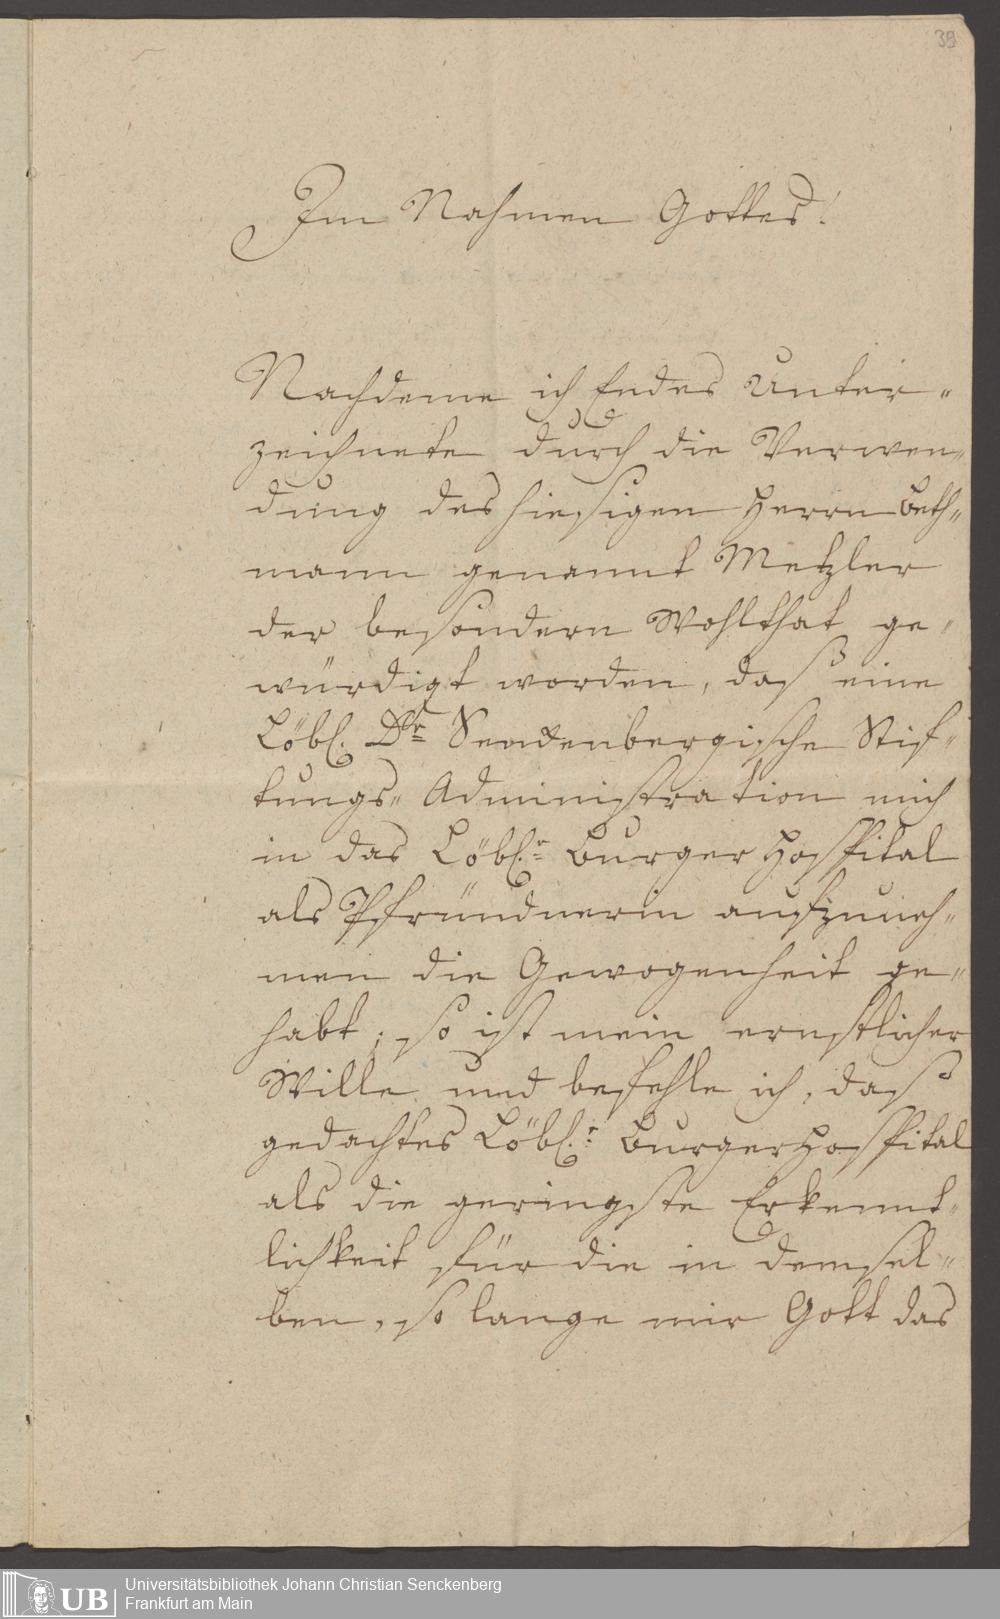 39
Im Nahmen Gottes!
Nachdeme ich Endes Unter„
zeichnete durch die Verwen„
dung des hiesigen Herrn Beth„
mann genannt Metzler
der besondern Wohlthat ge„
würdigt worden, daß eine
Löbl. Dr Senckenbergische Stif„
tungs„ Administration mich
in das Löbl.e Burger Hospital
als Pfründnerin aufzuneh„
men die Gewogenheit ge„
habt; so ist mein ernstlicher
Wille und befehle ich, daß
gedachtes Löbl.e Burger Hospital
als die geringste Erkennt„
lichkeit für die in demsel„
ben, so lange mir Gott das
UB
Universitätsbibliothek Johann Christian Senckenberg
Frankfurt am Main